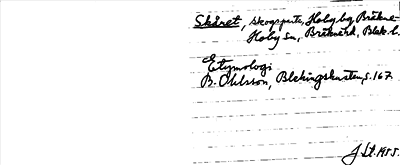 Skåret, skogspente, Hoby by, Bräkne-
Hoby sn, Bräkne hd, Blek. l.
Etymologi
B. Ohlsson, Blekingskusten, s. 167
J St. 1955.